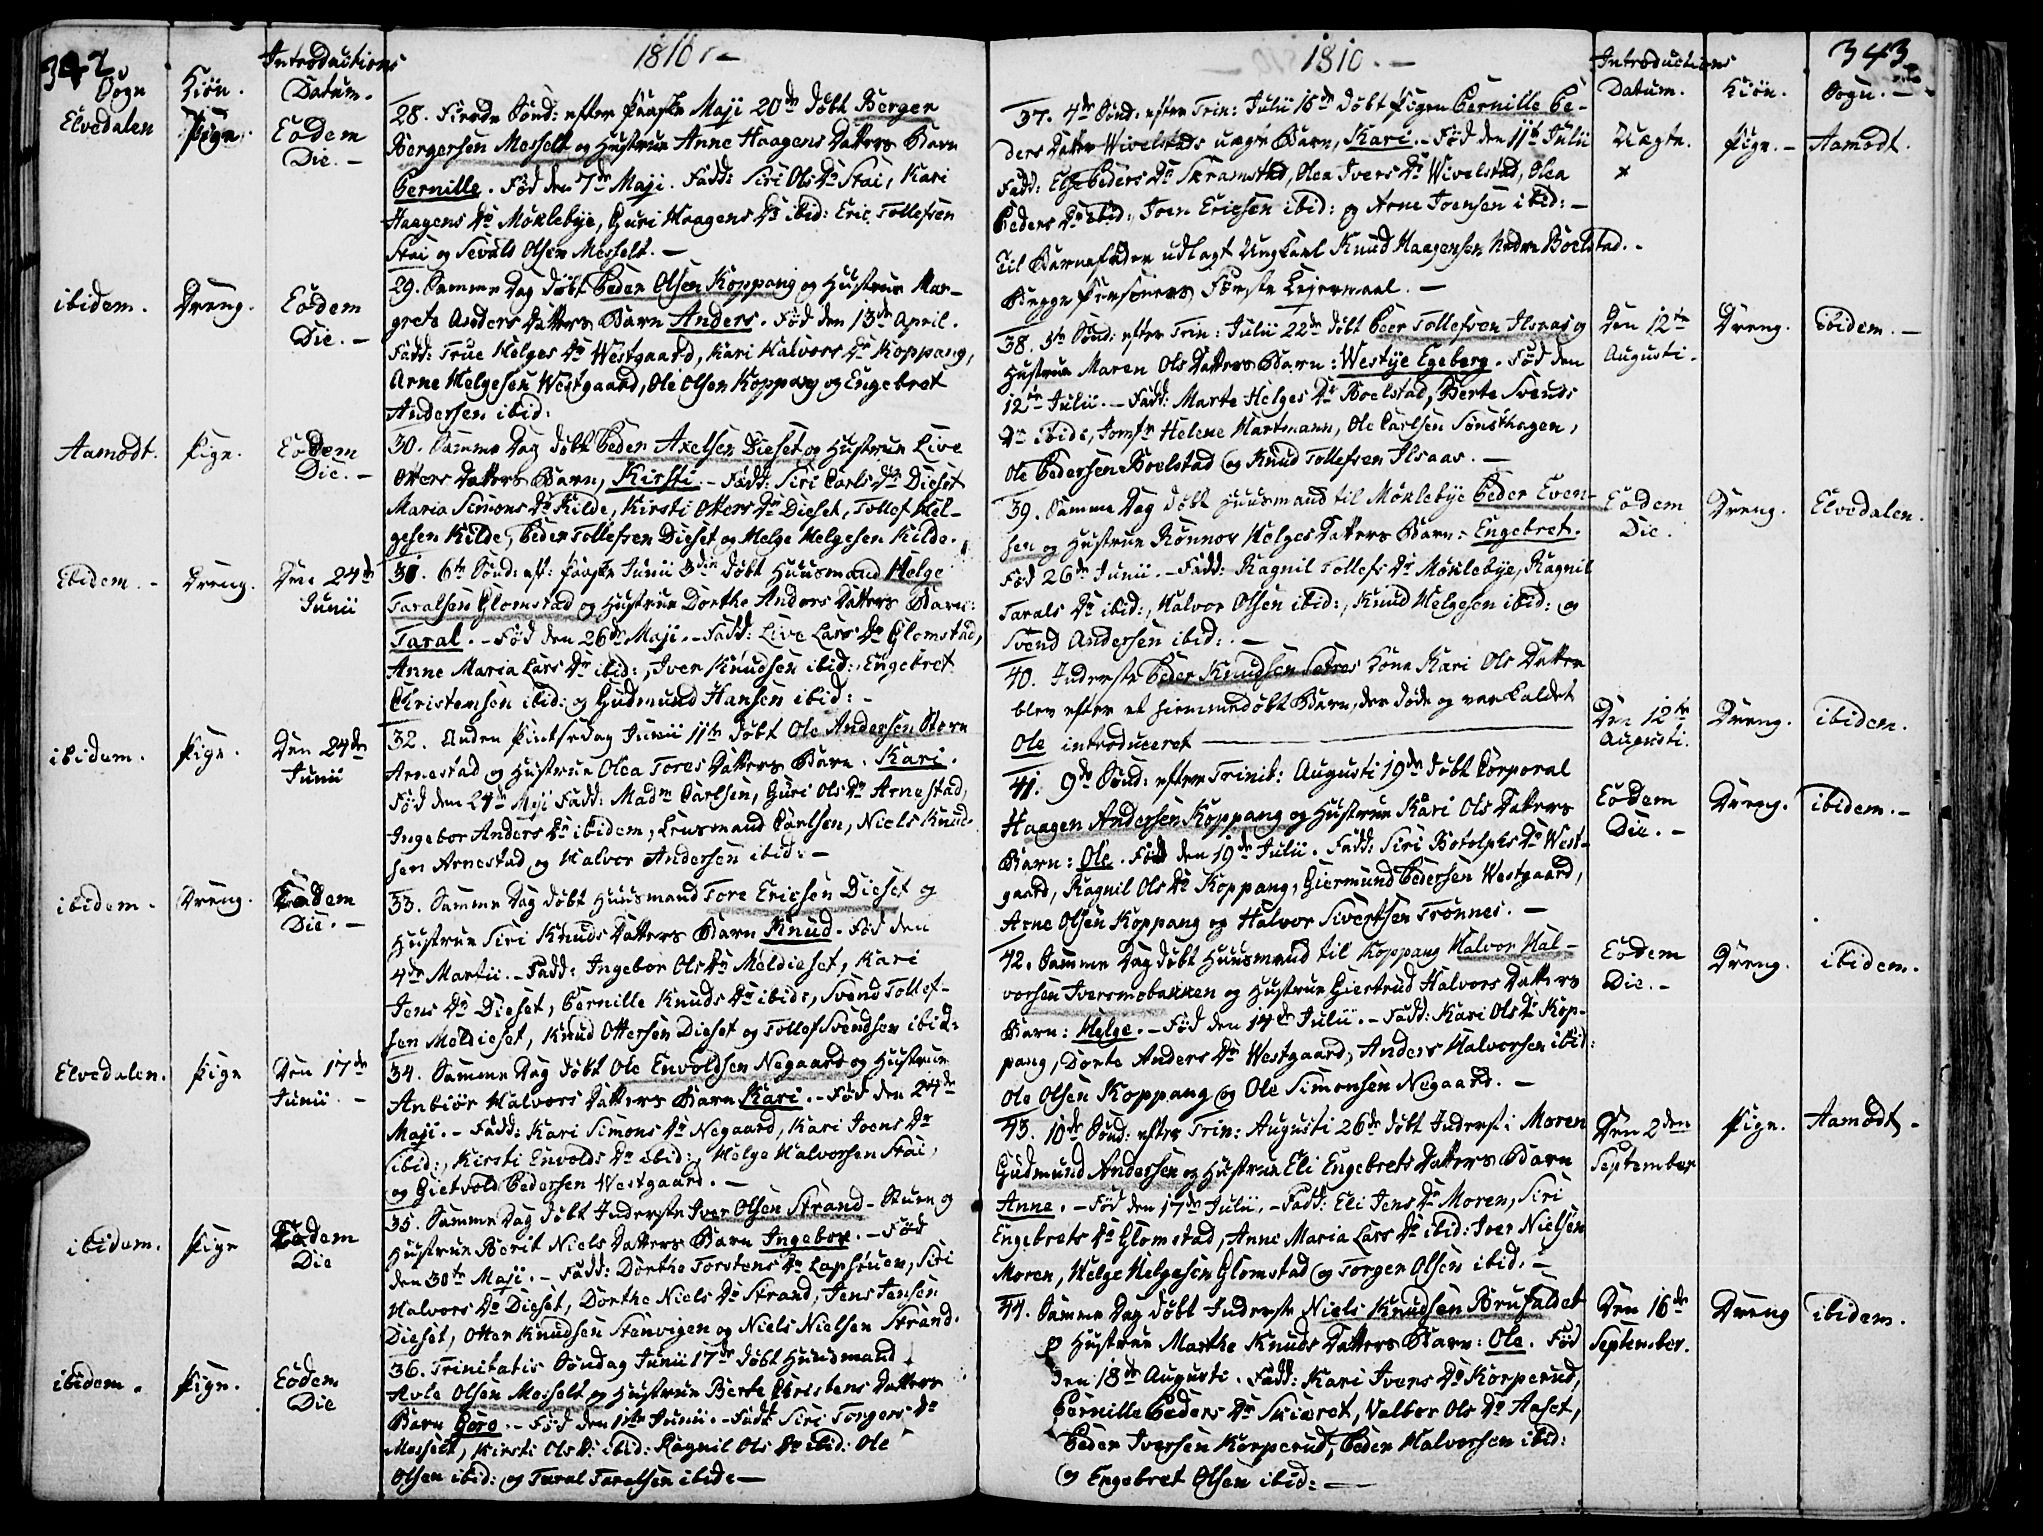 342.
1810. -
Sogn
Kiön.
Introductions
Datum.
Elvedalen
Pige.
Eodem
Die. -
28. Fierde Sönd: efter Paaske Maji 20de döbt Berger
Bergersen Messelt og Hustrue Anne Haagens Datters Barn
Pernille. Föd den 7de Maji. Fadd: Siri Ols Dr Stai, Kari
Haagens Dr Möklebye, Guri Haagens Dr ibid: Eric Tollefsen
Stai og Sevald Olsen Messelt. -
ibidem.
Dreng.
Eodem
Die. -
29. Samme Dag döbt Peder Olsen Koppang og Hustrue Mar-
grete Anders Datters Barn Anders. Föd den 13de April.
Fadd: True Helges Dr Westgaard, Kari Halvors Dr Koppang,
Arne Helgesen Westgaard, Ole Olsen Koppang og Engebret
Andersen ibid:
Aamodt.
Pige.
Eodem
Die. -
30. Samme Dag döbt Peder Axelsen Dieset og Hustrue Live
Otters Datters Barn, Kirsti. - Fadd: Siri Carls Dr Dieset
Maria Simons Dr Kilde, Kirsti Otters Dr Dieset, Tollef Hel-
gesen Kilde, Peder Tollefsen Dieset og Helge Helgesen Kilde.
Ibidem. -
Dreng.
Den 24de
Junii
31. 6te Sönd: eft: Paaske Junii 3die döbt Huusmand Helge
Taralsen Glomstad og Hustrue Dorthe Anders Datters Barn:
Taral. - Föd den 26de Maji. - Fadd: Live Lars Dr Glomstad,
Anne Maria Lars Dr ibid:, Iver Knudsen ibid:, Engebret
Christensen ibid: og Gudmund Hansen ibid: -
ibidem.
Pige.
Den 24de
Junii
32. Anden Pintsedag Junii 11te döbt Ole Andersen Stern
Arnestad og Hustrue Olea Tores Datters Barn. Kari.
Föd den 24de Maji Fadd: Madm Carlsen, Guri Ols Dr Arnestad,
Ingebor Anders Dr ibidem, Lensmand Carlsen, Niels Knud-
sen Arnestad og Halvor Andersen ibid: -
ibidem.
Dreng.
Eodem
Die. -
33. Samme Dag döbt Huusmand Tore Ericsen Dieset og
Hustrue Siri Knuds Datters Barn Knud. Föd den
4de Martii. - Fadd: Ingebor Ols Dr Meldieset, Kari
Jens Dr Dieset, Pernille Knuds Dr ibid:, Svend Tollef-
sen Meldieset, Knud Ottersen Dieset og Tollef Svendsen ibid:
Elvedalen.
Pige
Den 17de
Junii. -
34. Samme Dag döbt Ole Envoldsen Negaard og Hustrue
Anbiör Halvors Datters Barn Kari. - Föd den 24de
Maji. - Fadd: Kari Simons Dr Negaard, Kari Joens Dr
ibid:, Kirsti Envolds Dr ibid:, Helge Halvorsen Stai,
og Gietvold Pedersen Westgaard. -
ibidem.
Pige
Eodem
Die
35. Samme Dag döbt Inderste Iver Olsen Strand - Stuen og
Hustrue Berit Niels Datters Barn Ingebor. - Föd
den 30te Maji. - Fadd: Dorthe Torstens Dr Lapstuen, Siri
Halvors Dr Dieset, Dorthe Niels Dr Strand, Jens Jensen
Dieset, Otter Knudsen Stenvigen og Niels Nielsen Strand.
ibidem.
Pige.
Eodem
Die
36. Trinitatis Söndag Junii 17de döbt Huusmand
Avle Olsen Messelt og Hustrue Berte Christens Datters
Barn Goro. - Föd den 1ste Junii. - Fadd: Siri Tongers Dr
Messelt, Kirsti Ols Dr ibid: Ragnil Ols Dr ibid: Ole
Olsen ibid: og Taral Taralsen ibid: -
1810. -
Introductions
Datum.
Kiön.
Sogn. -
343.
37. 4de Sönd: efter Trin: Julii 15de döbt Pigen Pernille Pe-
ders Datter Wivelstads uægte Barn, Kari. - Föd den 11te Julii
Fadd: Else Peders Dr Skramstad, Olea Ivers Dr Wivelstad, Olea
Peders Dr ibid:, Joen Ericsen ibid: og Arne Joensen ibid: -
Til Barnefader udlagt Ungkarl Knud Haagensen Nedre Bolstad. -
Begge Personers Förste Leiermaal. -
Uægte.
x
Pige. -
Aamodt.
38. 5te Sönd: efter Trin: Julii 22de döbt Peer Tollefsen Ilsaas og
Hustrue Maren Ols Datters Barn: Westye Egeberg. Föd den
12te Julii. - Fadd: Marte Helges Dr Boelstad, Berte Svends
Dr ibid:, Jomfr Helene Hartmann, Ole Carlsen Sönsthagen,
Ole Pedersen Boelstad og Knud Tollefsen Ilsaas. -
Den 12te
Augusti.
Dreng.
ibidem. -
39. Samme Dag döbt Huusmand til Möklebye Peder Even-
sen og Hustrue Rönnov Helges Datters Barn: Engebret.
Föd 26de Junii. - Fadd: Ragnil Tollefs Dr Möklebye, Ragnil
Tarals Dr ibid:, Halvor Olsen ibid:, Knud Helgesen ibid: og
Svend Andersen ibid: -
Eodem
Die.
Dreng.
Elvedalen.
40. Inderste Peder Knudsen Sætres Kone Kari Ols Datter
blev efter et hiemmedöbt Barn, der döde og var kaldet
Ole introduceret
Den 12te
Augusti.
Dreng.
ibidem.
41. 9de Sönd: efter Trinit: Augusti 19de döbt Corporal
Haagen Andersen Koppang og Hustrue Kari Ols Datters
Barn: Ole. Föd den 19de Julii. Fadd: Siri Botolphs Dr West-
gaard, Ragnil Ols Dr Koppang, Giermund Pedersen Westgaard,
Arne Olsen Koppang og Halvor Sivertsen Trönnes. -
Eodem
Die. -
Dreng.
ibidem. -
42. Samme Dag döbt Huusmand til Koppang Halvor Hal-
vorsen Iversmobakken og Hustrue Giertrud Halvors Datters
Barn: Helge. - Föd den 14de Julii. - Fadd: Kari Ols Dr Kop-
pang, Dorte Anders Dr Westgaard, Anders Halvorsen ibid:
Ole Olsen Koppang og Ole Simonsen Negaard. -
Eodem
Die. -
Dreng.
ibidem.
43. 10de Sönd: efter Trin: Augusti 26de döbt Inderst i Moren
Gudmund Andersen og Hustrue Eli Engebrets Datters Barn
Anne. - Föd den 17de Julii. - Fadd: Eli Jens Dr Moren, Siri
Engebrets Dr Glomstad, Anne Maria Lars Dr ibid: Iver Nielsen
Moren, Helge Helgesen Glomstad og Torger Olsen ibid. -
Den 2den
September
Pige.
Aamodt. -
44. Samme Dag döbt Inderste Niels Knudsen Brufaldet
og Hustrue Marthe Knuds Datters Barn: Ole. Föd
den 18de Augusti. Fadd: Kari Ivers Dr Korperud,
Pernille Peders Dr Skiæret, Valbor Ols Dr Aaset,
Peder Iversen Korperud, Peder Halvorsen ibid:
og Engebret Olsen ibid: -
Den 16de
September.
Dreng
ibidem.